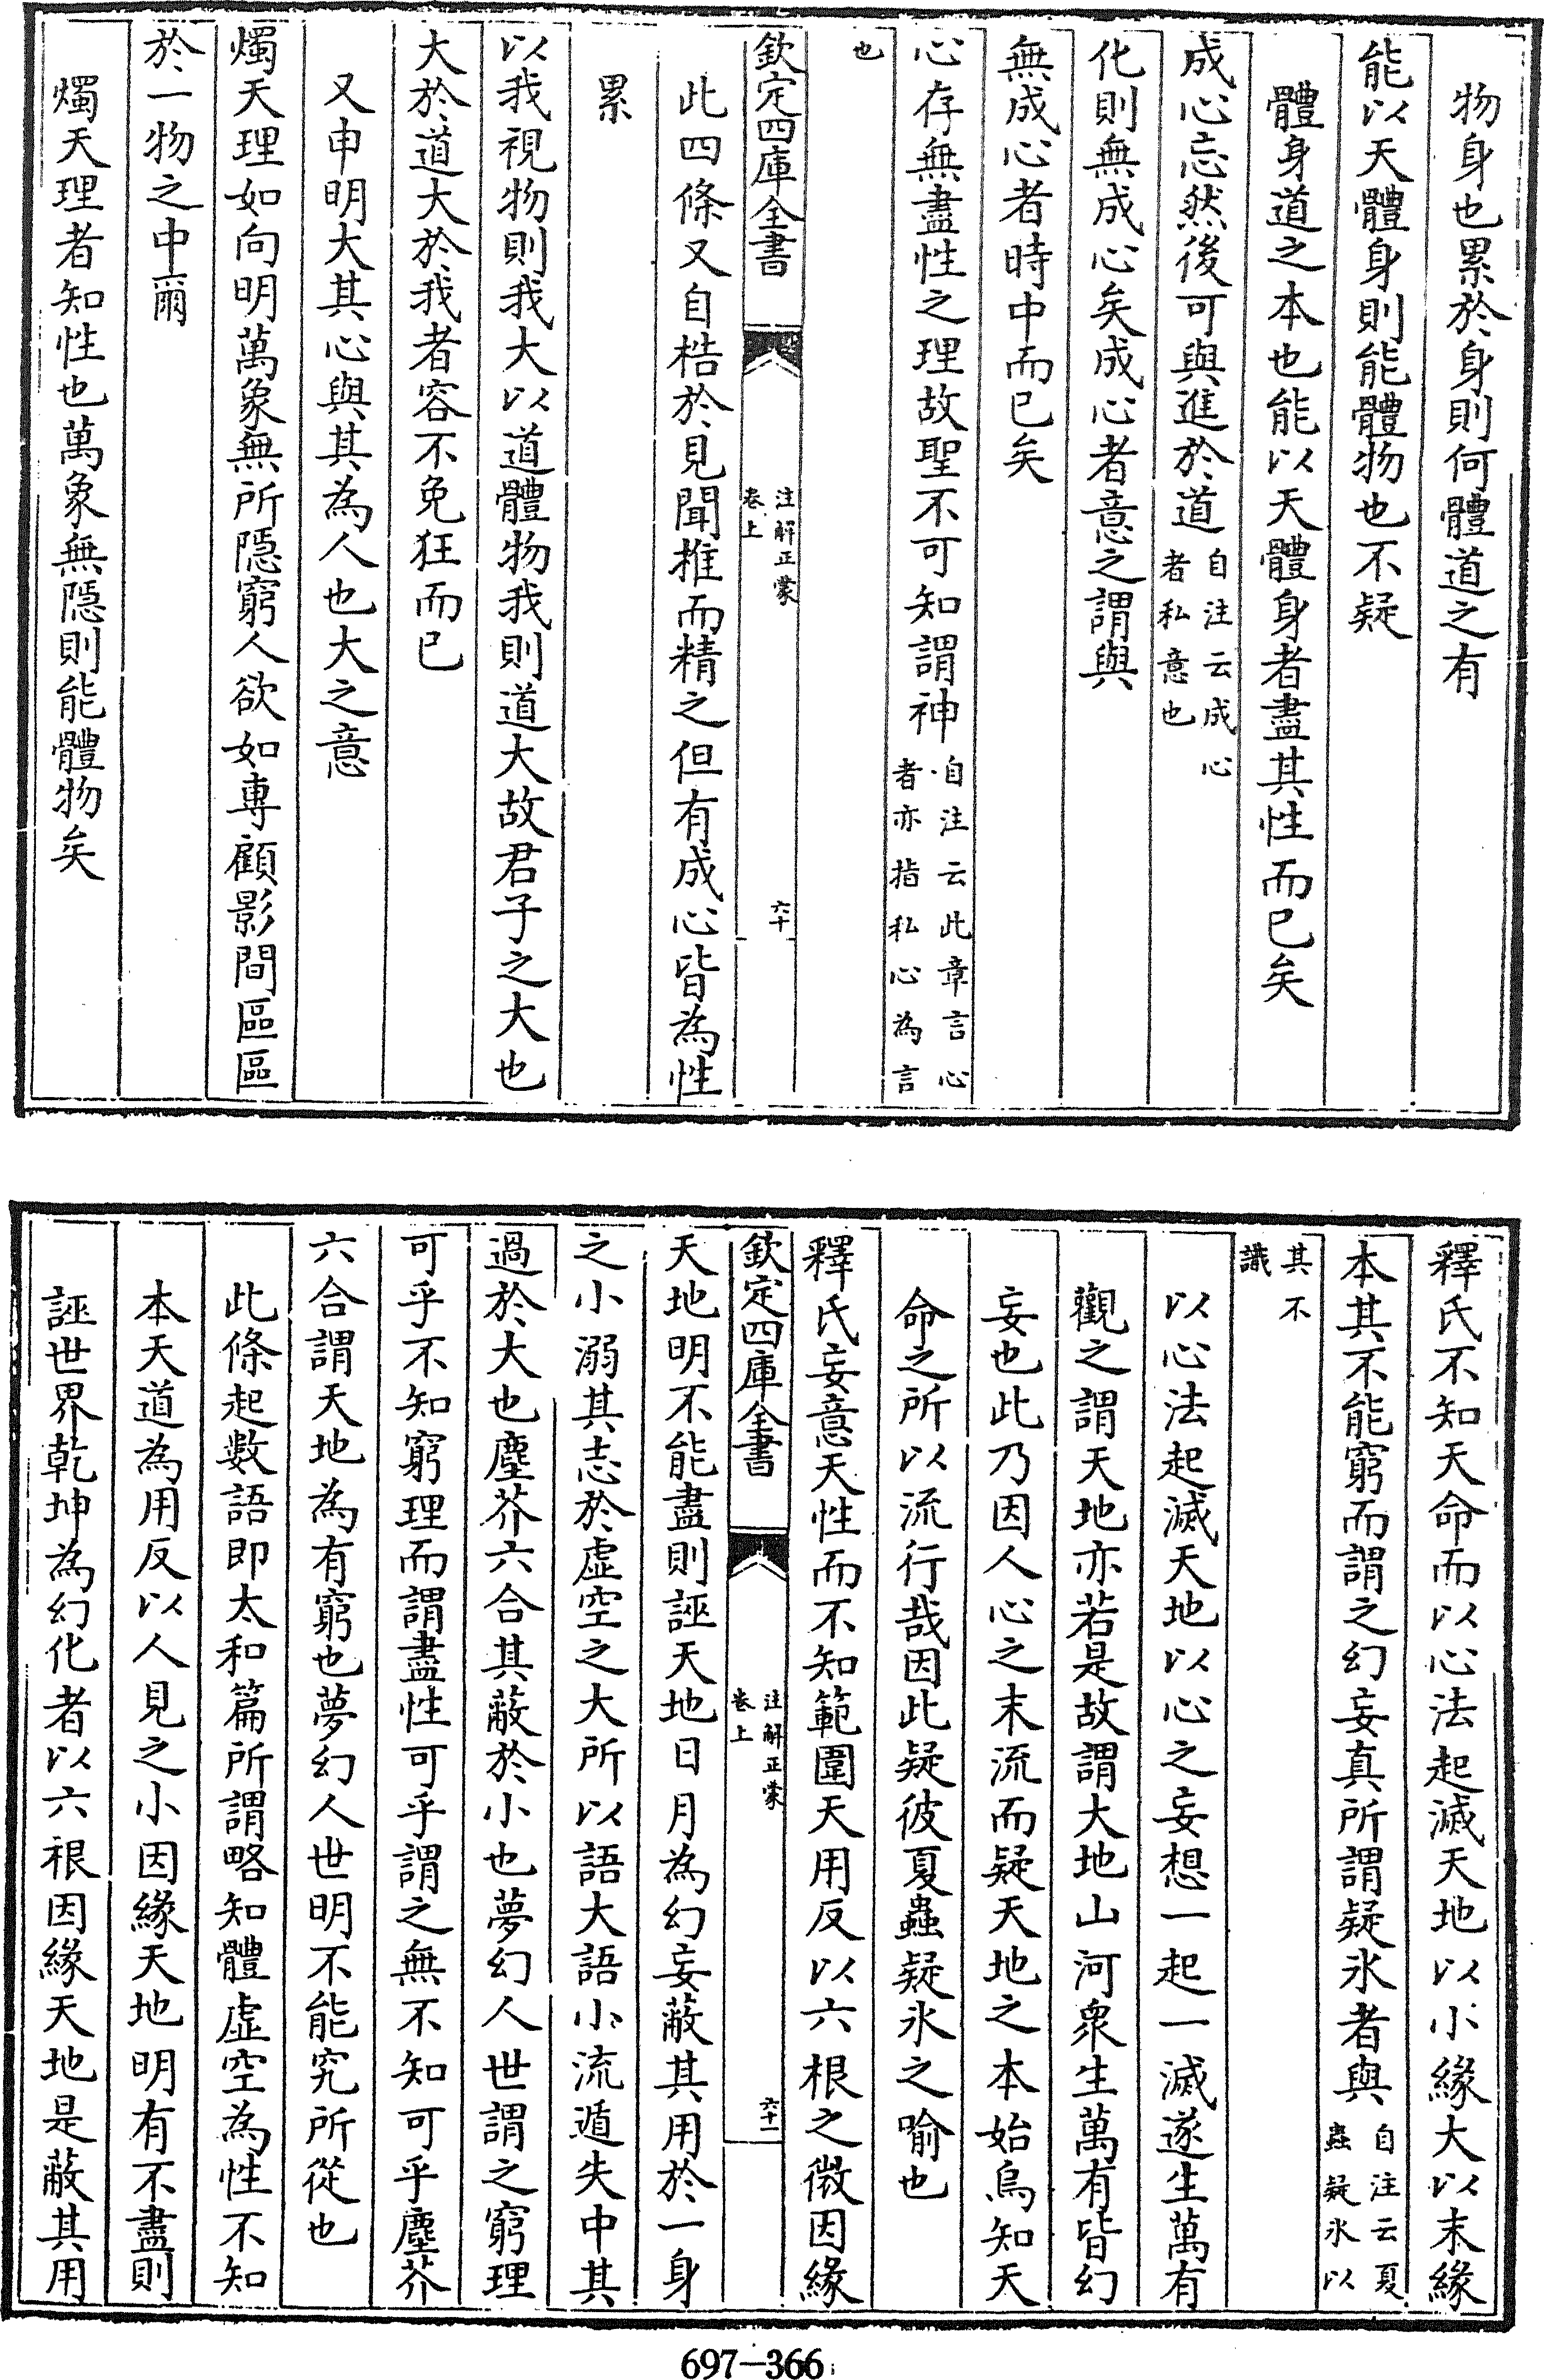 物身也累於身則何體道之有
能以天體身則能體物也不疑
體身道之本也能以天體身者盡其性而已矣
成心忘然後可與進於道自注云成心
者私意也
化則無成心矣成心者意之謂與
無成心者時中而已矣
心存無盡性之理故聖不可知謂神自注云此章言心
者亦指私心為言
也
欽定四庫全書
注解正蒙
卷上
六十
此四條又自梏於見聞推而精之但有成心皆為性
累
以我視物則我大以道體物我則道大故君子之大也
大於道大於我者容不免狂而已
又申明大其心與其為人也大之意
燭天理如向明萬象無所隱窮人欲如專顧影間區區
於一物之中爾
燭天理者知性也萬象無隱則能體物矣
釋氏不知天命而以心法起滅天地以小緣大以末緣
本其不能窮而謂之幻妄真所謂疑氷者與自注云夏
蟲疑氷以
其不
識
以心法起滅天地以心之妄想一起一滅遂生萬有
觀之謂天地亦若是故謂大地山河衆生萬有皆幻
妄也此乃因人心之末流而疑天地之本始烏知天
命之所以流行哉因此疑彼夏蟲疑氷之喻也
釋氏妄意天性而不知範圍天用反以六根之微因緣
欽定四庫全書
注解正蒙
卷上
六十一
天地明不能盡則誣天地日月為幻妄蔽其用於一身
之小溺其志於虛空之大所以語大語小流遁失中其
過於大也塵芥六合其蔽於小也夢幻人世謂之窮理
可乎不知窮理而謂盡性可乎謂之無不知可乎塵芥
六合謂天地為有窮也夢幻人世明不能究所從也
此條起數語即太和篇所謂略知體虛空為性不知
本天道為用反以人見之小因緣天地明有不盡則
誣世界乾坤為幻化者以六根因緣天地是蔽其用
697-366